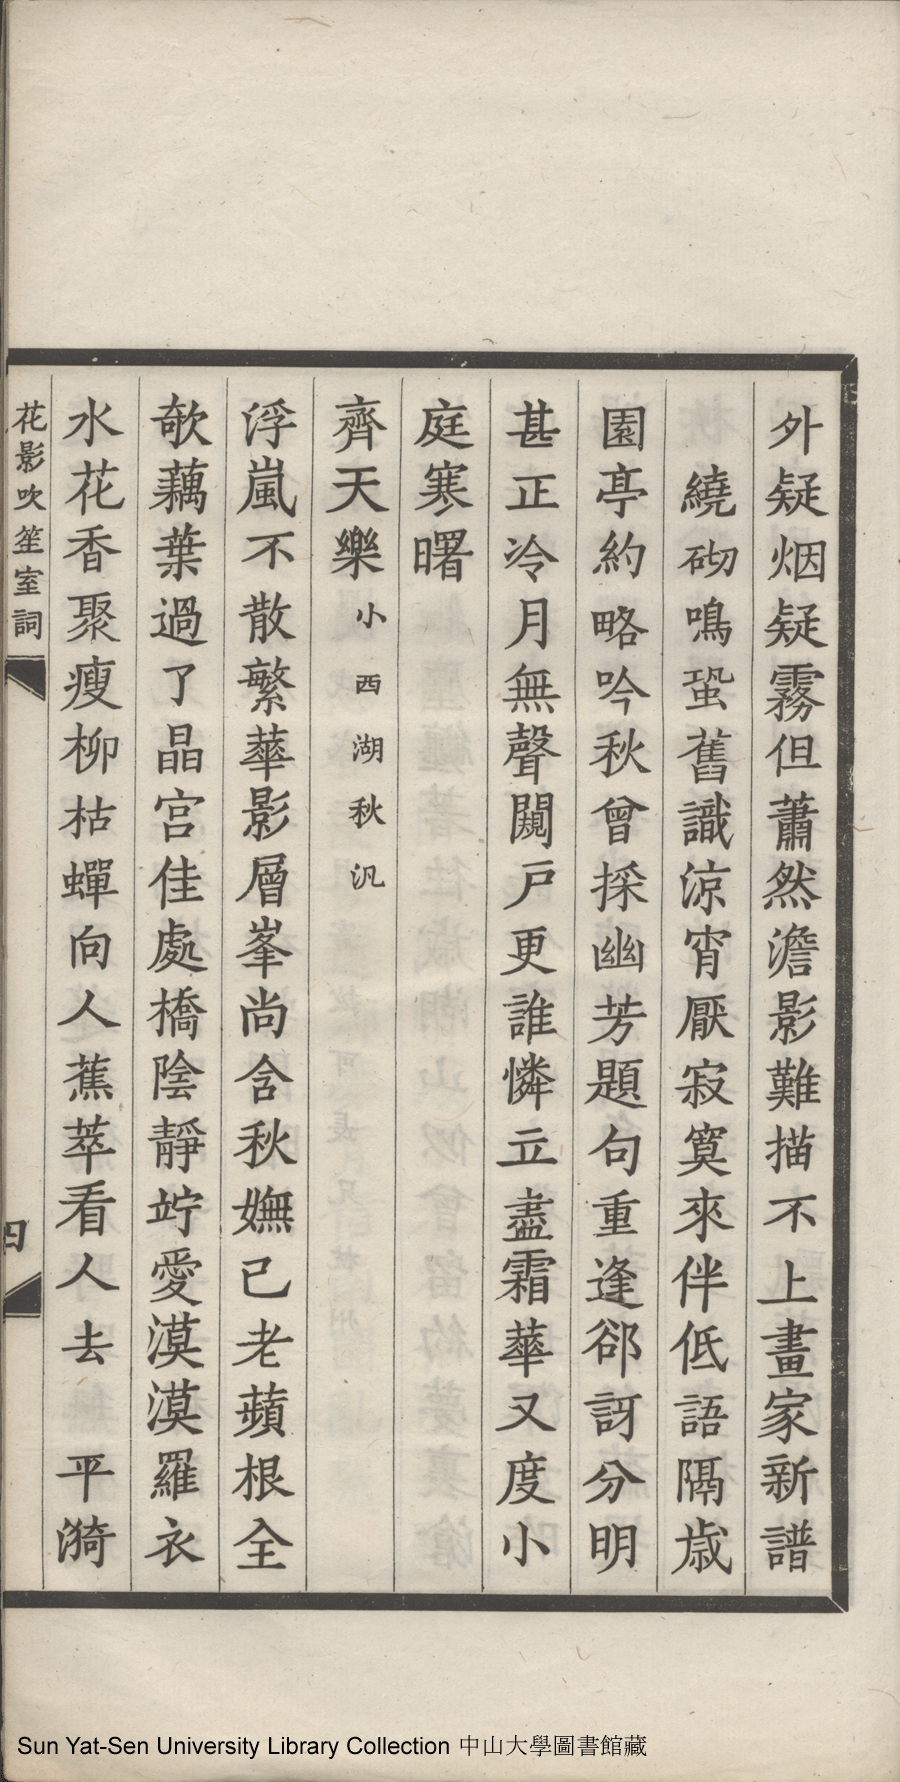 外疑烟疑霧但蕭然澹影難描不上畫家新譜
繞砌鳴蛩舊識涼宵厭寂寞來伴低語隔歲
園亭約略吟秋曾採幽芳題句重逢郤訝分明
甚正冷月無聲闚戸更誰憐立盡霜華又度小
庭寒曙
齊天樂小西湖秋汎
浮嵐不散繁華影層峯尚含秋嫵已老蘋根全
欹藕葉過了晶宮佳處橋陰靜竚愛漠漠羅衣
水花香聚瘦柳枯蟬向人蕉萃看人去 平漪
花影吹笙室詞
四
Sun Yat-Sen University Library Collection 中山大學圖書館藏